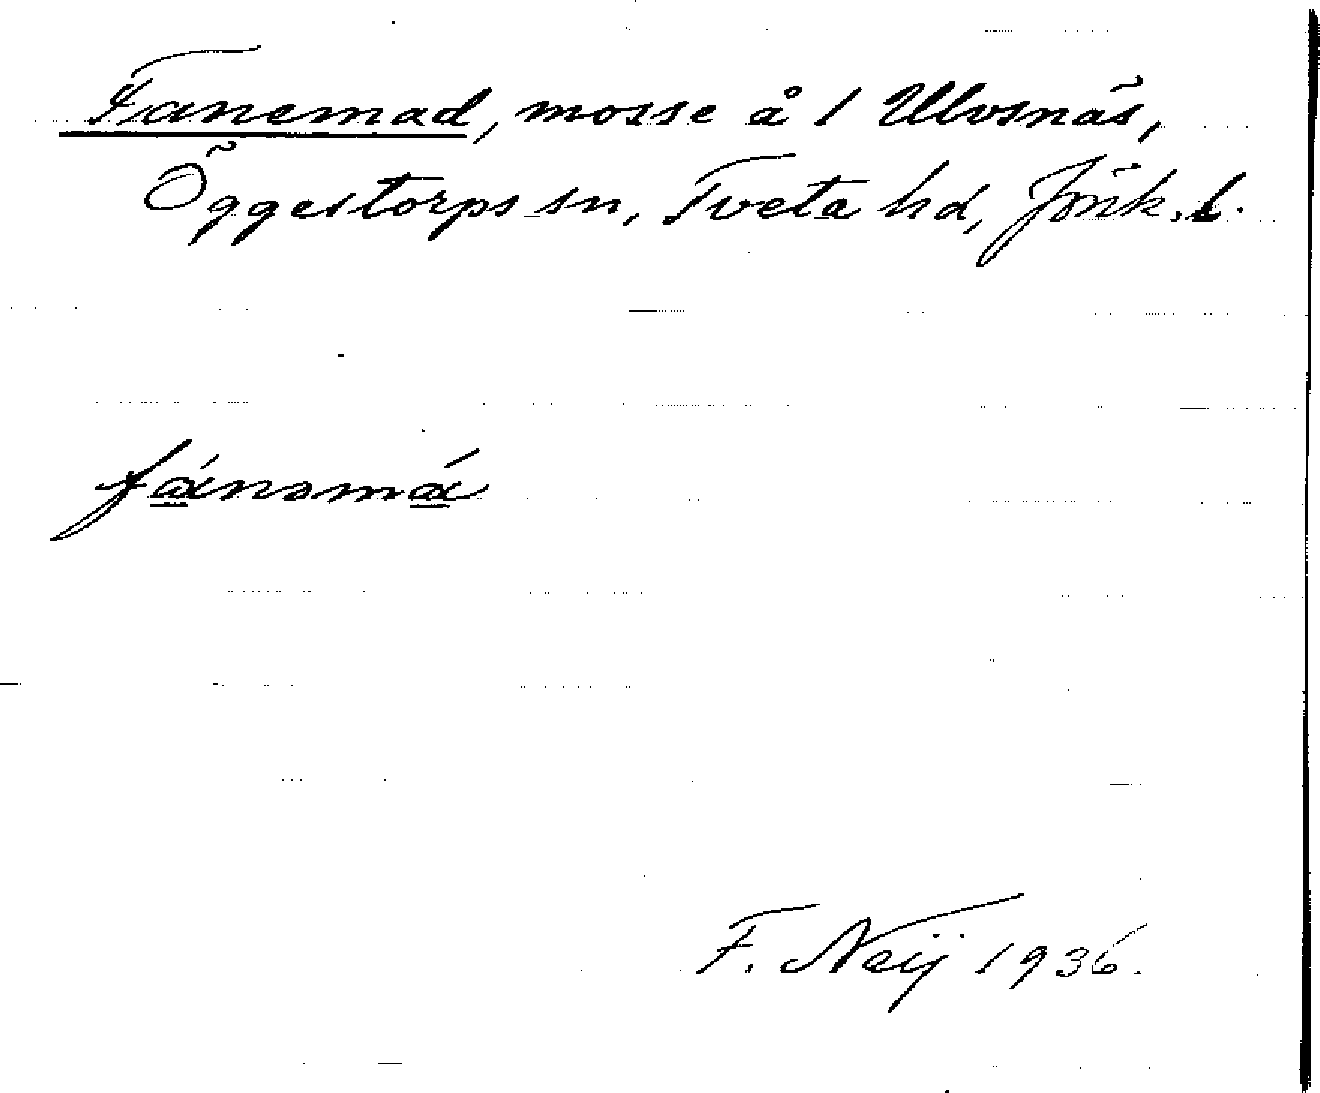 Fanemad, mosse å 1 Ulvsnäs,
Öggestorps sn, Tveta hd, Jönk. l.
fánəmá
F. Neij 1936.